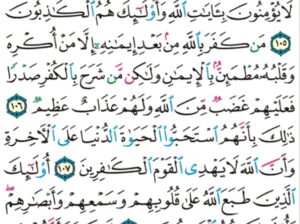 لَا يُؤْمِنُونَ بِـَٔايَٰتِ ٱللَّهِ وَأُو۟لَٰٓئِكَ هُمُ ٱلْكَٰذِبُونَ
١٠٥ مَن كَفَرَ بِٱللَّهِ مِنۢ بَعْدِ إِيمَٰنِهِۦٓ إِلَّا مَنْ أُكْرِهَ
وَقَلْبُهُۥ مُطْمَئِنٌّۢ بِٱلْإِيمَٰنِ وَلَٰكِن مَّن شَرَحَ بِٱلْكُفْرِ صَدْرًا
فَعَلَيْهِمْ غَضَبٌ مِّنَ ٱللَّهِ وَلَهُمْ عَذَابٌ عَظِيمٌ ١٠٦
ذَٰلِكَ بِأَنَّهُمُ ٱسْتَحَبُّوا۟ ٱلْحَيَوٰةَ ٱلدُّنْيَا عَلَى ٱلْءَاخِرَةِ
وَأَنَّ ٱللَّهَ لَا يَهْدِى ٱلْقَوْمَ ٱلْكَٰفِرِينَ ١٠٧ أُو۟لَٰٓئِكَ
ٱلَّذِينَ طَبَعَ ٱللَّهُ عَلَىٰ قُلُوبِهِمْ وَسَمْعِهِمْ وَأَبْصَٰرِهِمْ